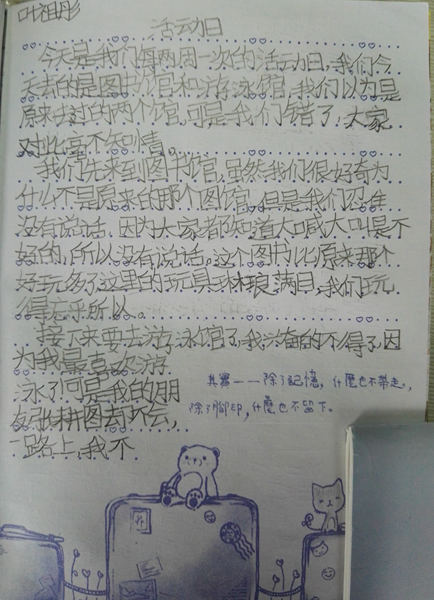 叶祖彤
活动日
今天是我们每两周一次的活动日,我们今
天去的是图书馆和游泳馆,我们以为是
原来去过的两个馆,可是我们错了,大家
对此毫不知情。
我们先来到图书馆,虽然我们很好奇为
什么不是原来的那个图馆,但是我们谁
没有说话,因为大家都知道大喊大叫是不
好的,所以没有说话。这个图书比原来那个
好玩多了这里的玩具琳琅满目,我们玩
得忘乎所以。
接下来要去游泳馆了,我兴奋的不得了,因
为我最喜欢游
泳了可是我的朋
友张耕图去环会,
一路上,我不
其實——除了記憶,什麼也不帶走,
除了腳印,什麼也不留下。